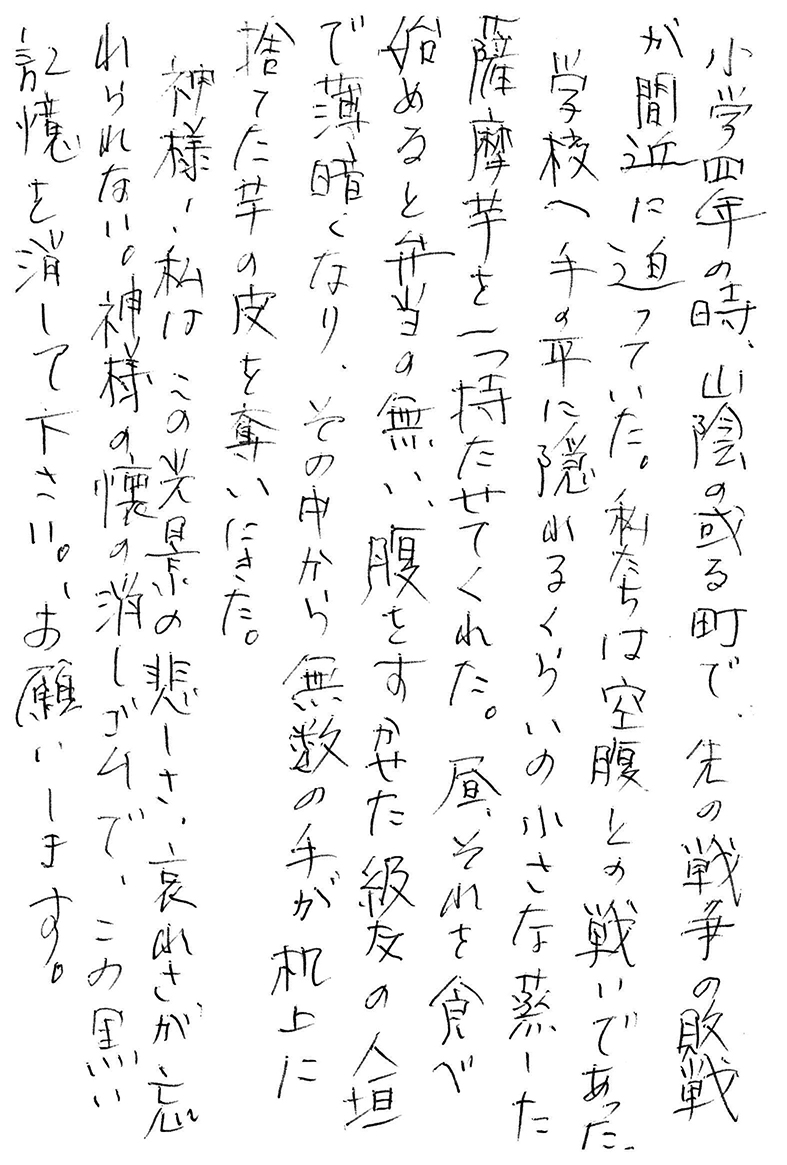 小学四年の時、山陰の或る町で、先の戦争の敗戦
が間近に迫っていた。私たちは空腹との戦いであった。
学校へ手の平に隠れるくらいの小さな蒸した
薩摩芋を一つ持たせてくれた。昼、それを食べ
始めると弁当の無い、腹をすかせた級友の人垣
で薄暗くなり、その中から無数の手が机上に
捨てた芋の皮を奪いにきた。
神様！、私はこの光景の悲しさ、哀れさが忘
れられない。神様の懐の消しゴムで、この黒い
記憶を消して下さい。、お願いします。